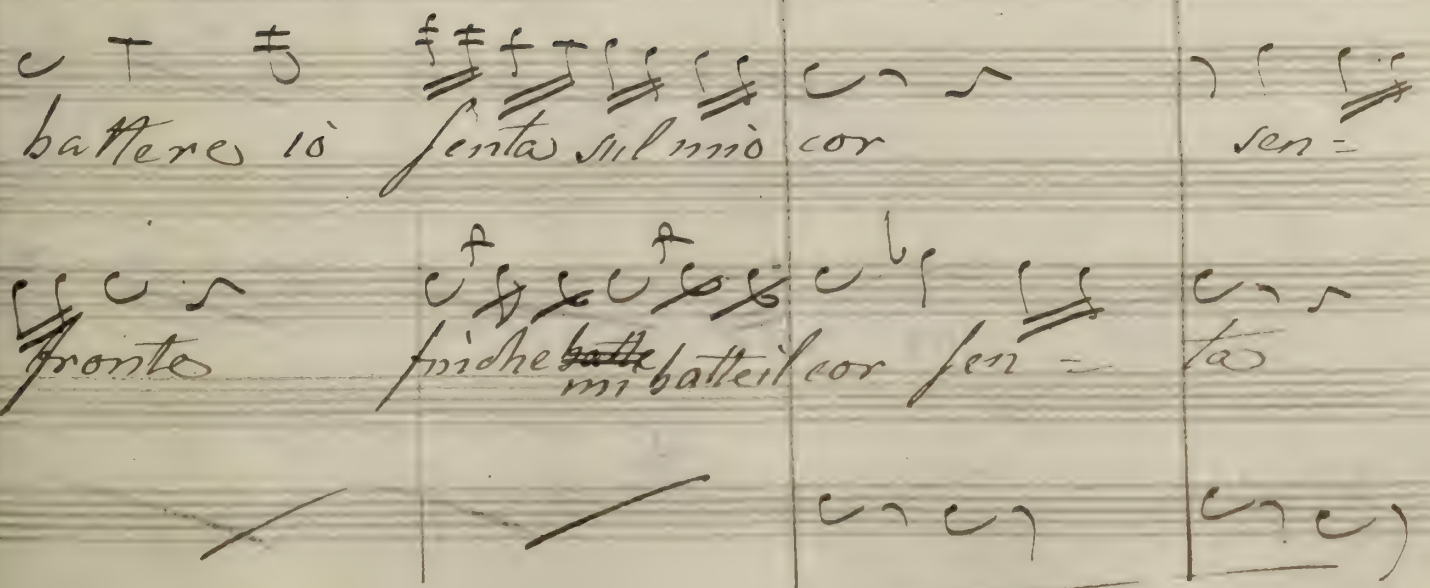 battere iò senta sul miò cor sen=
fronte finche batte mi batte il cor sen = ta